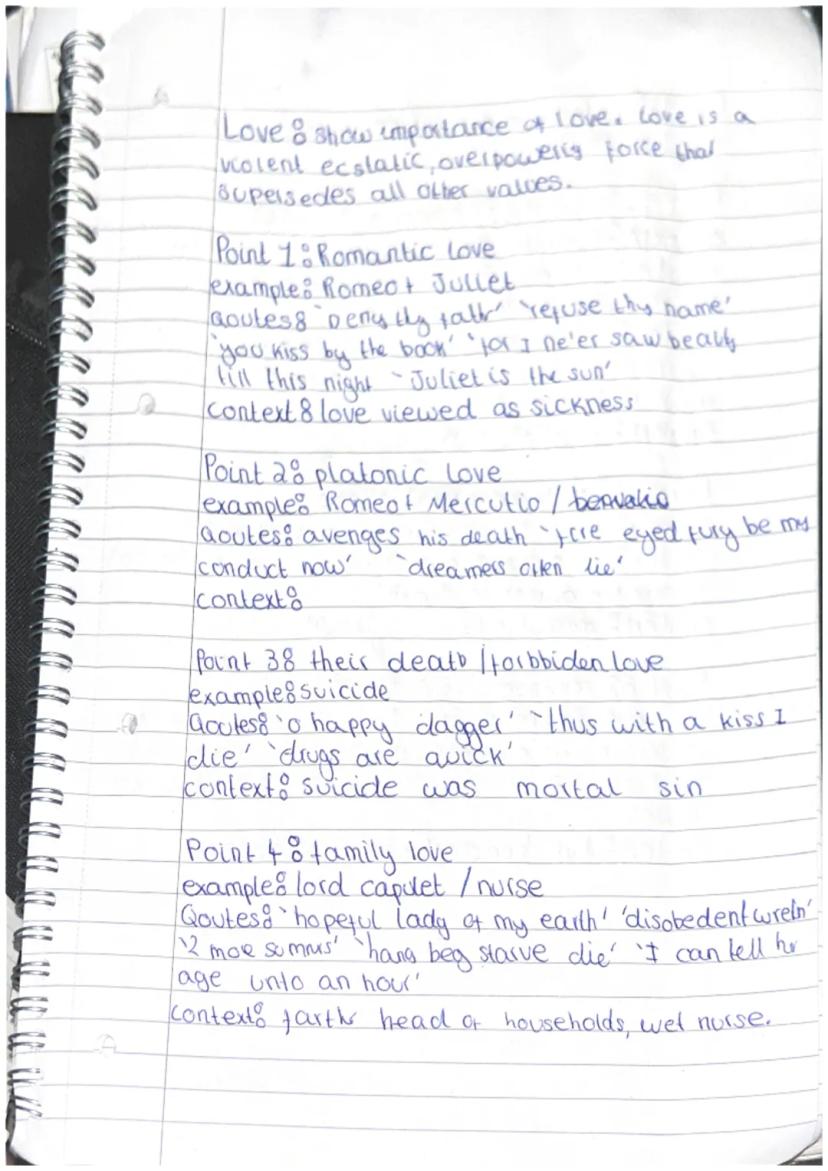 Love: show importance of love. Love is a
violent ecstatic, overpowering force that
supersedes all other values.
Point 1: Romantic love
example: Romeo + Juliet
Qoutes: 'Deny thy fathr' 'refuse thy name'
'you kiss by the book' 'for I ne'er saw beauty
till this night 'Juliet is the sun'
context: love viewed as sickness
Point 2: platonic love
example: Romeo + Mercutio / benvolio
Qoutes: avenges his death 'fire eyed fury be my
conduct now' 'dreamers often lie'
context:
Point 3: their death / forbbiden love
example: suicide
Qoutes: 'o happy dagger' 'thus with a kiss I
die' 'drugs are quick'
context: suicide was mortal sin
Point 4: family love
example: lord capulet / nurse
Qoutes: 'hopeful lady of my earth' 'disobedent
'2 more 'hang beg starve die' 'I can tell hr
age unto an hour'
context: head of households, wet nurse.